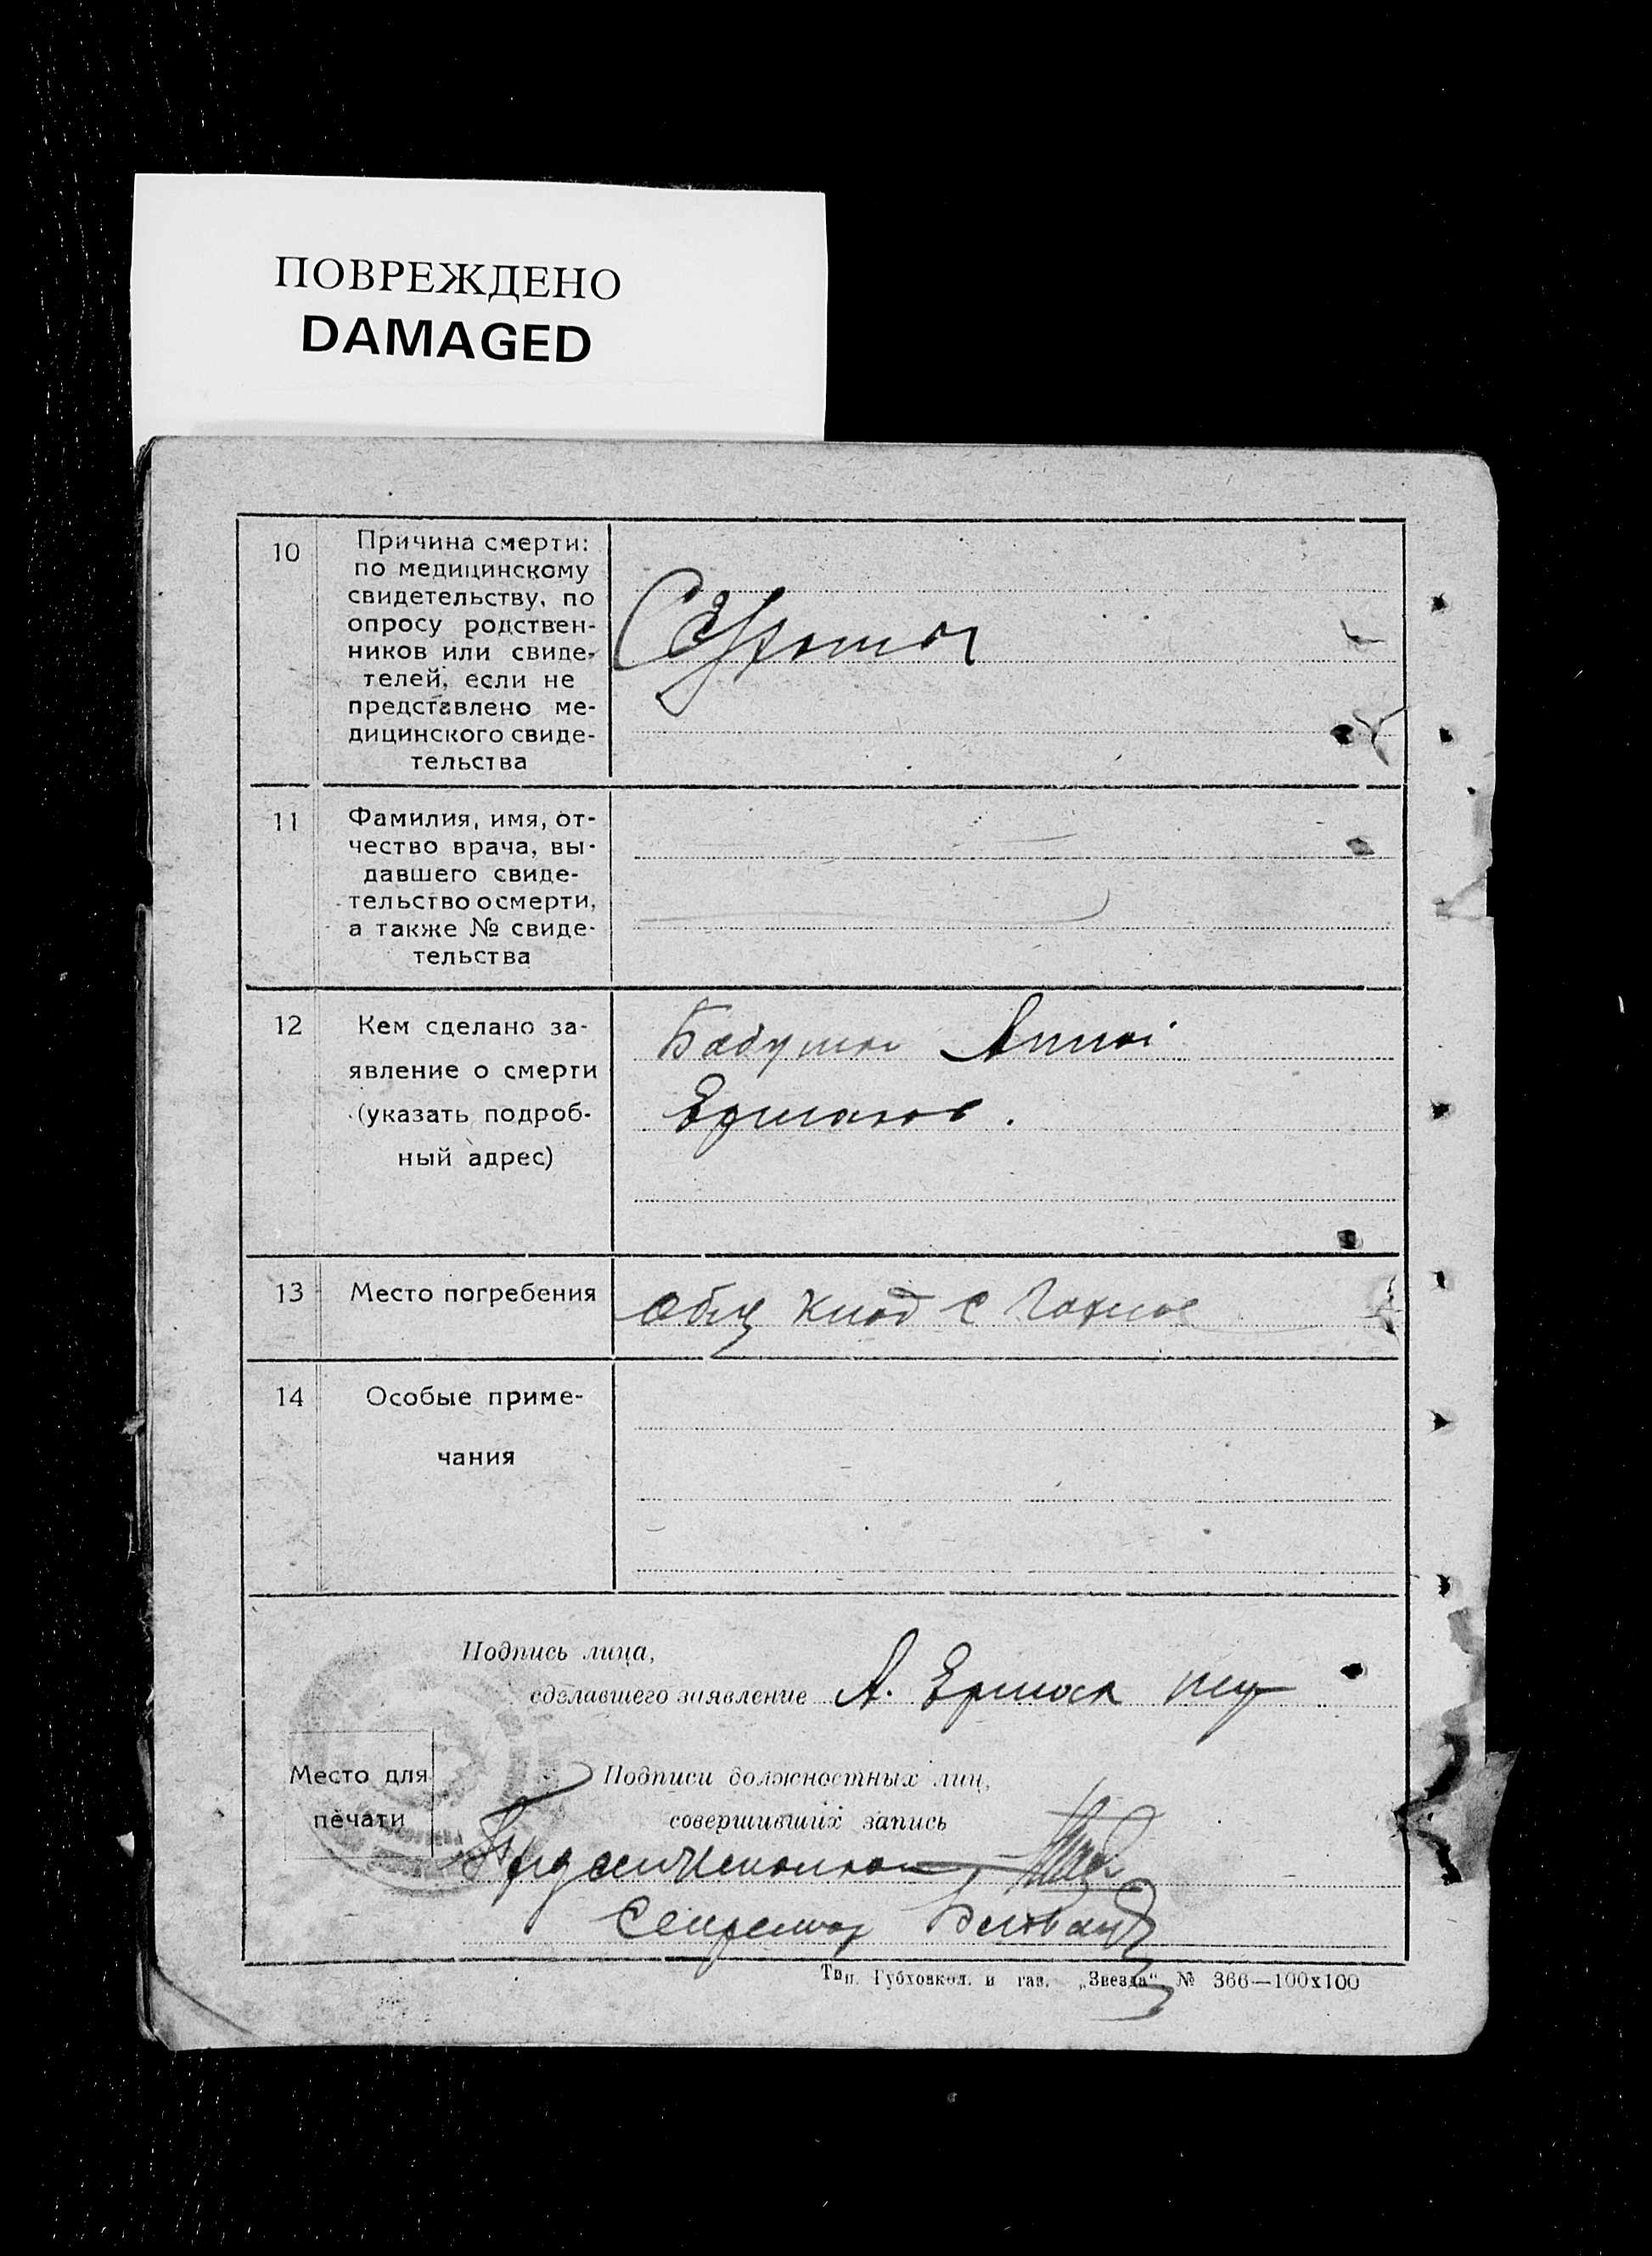 ПОВРЕЖДЕНО
DAMAGED
10
Причина смерти:
по медицинскому
свидетельству, по
опросу родствен-
ников или свиде-
телей, если не
представлено ме-
дицинского свиде-
тельства
11
Фамилия, имя, от-
чество врача, вы-
давшего свиде-
тельство о смерти,
а также № свиде-
тельства
12
Кем сделано за-
явление о смерти
(указать подроб-
ный адрес)
Анной
13
Место погребения
общ клад с
14
Особые приме-
чания
Подпись лица,
сделавшего заявление А. Ермак
Место для
печати
Подписи должностных лиц,
совершивших запись
Секретар
Тип. Губховкол. и газ. „Звезда“ № 366—100х100